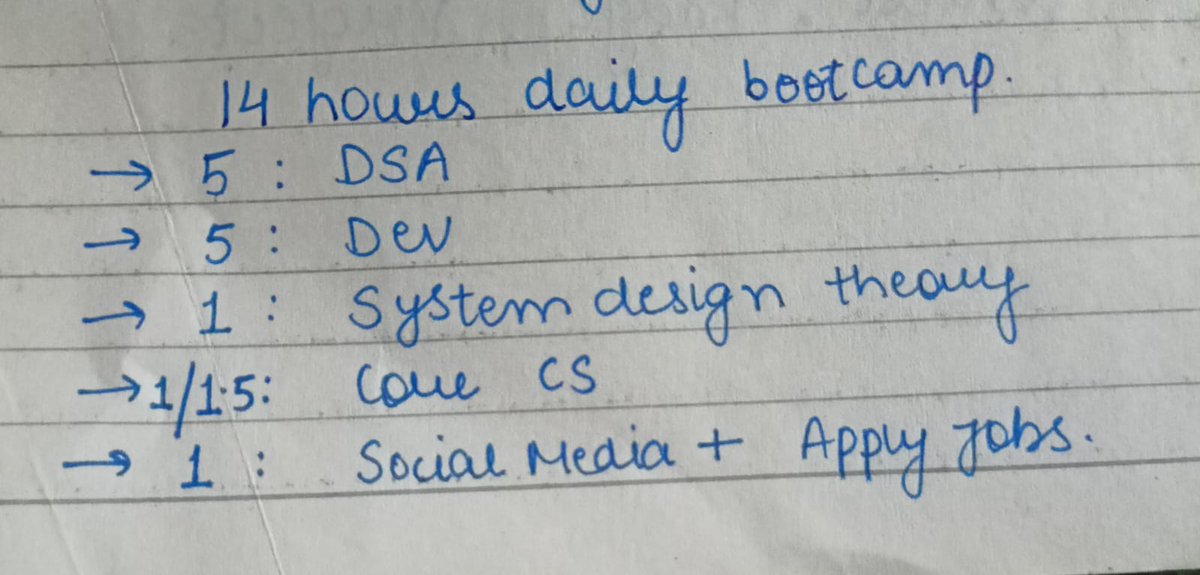 14 hours daily bootcamp.
→ 5 : DSA
→ 5 : Dev
→ 1 : System design theory
→ 1/1.5: Core CS
→ 1 : Social Media + Apply Jobs.